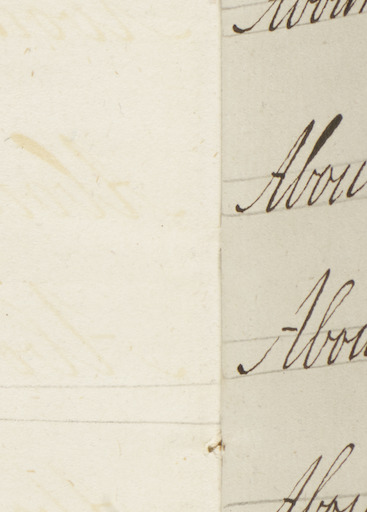 Abou
Abou
Abou
Abou